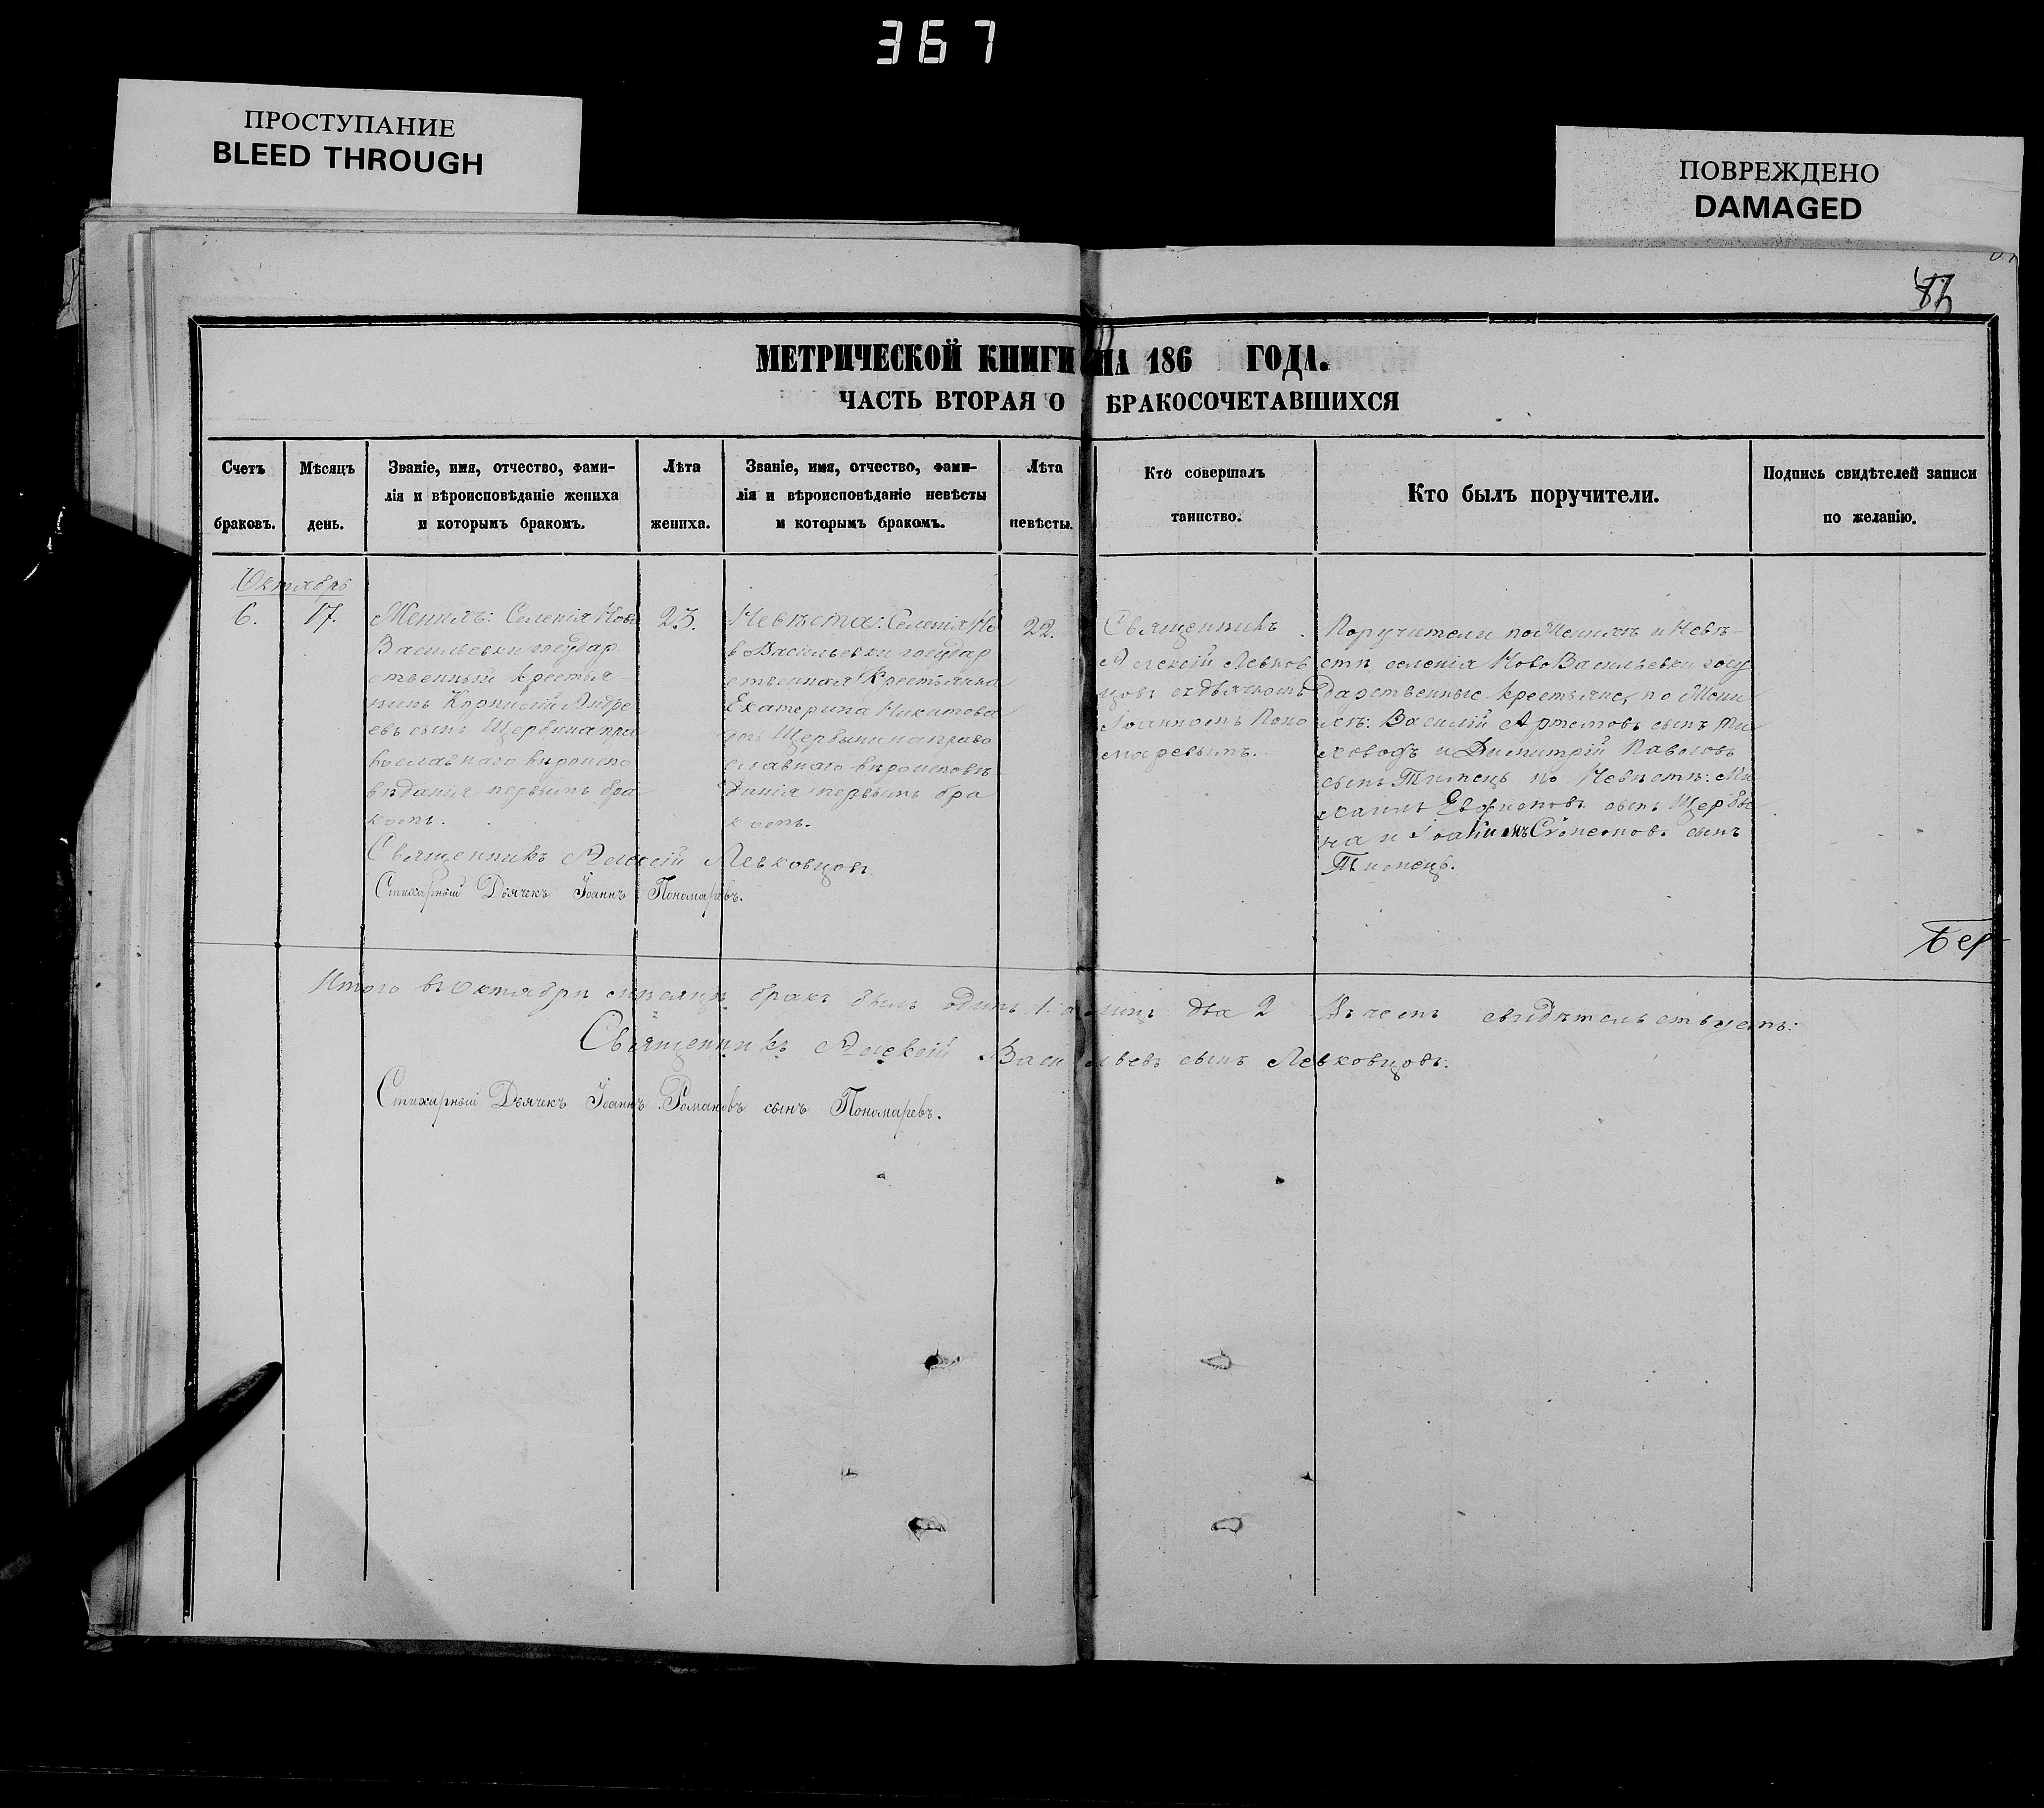 367
ПРОСТУПАНИЕ
BLEED THROUGH
ПОВРЕЖДЕНО
DAMAGED
МЕТРИЧЕСКОЙ КНИГИ НА 186 ГОДА.
ЧАСТЬ ВТОРАЯ О БРАКОСОЧЕТАВШИХСЯ
Счетъ
браковъ.
Мѣсяцъ
день.
Званіе, имя, отчество, фами-
лія и вѣроисповѣданіе жениха
и которымъ бракомъ.
Лѣта
жениха.
Званіе, имя, отчество, фами-
лія и вѣроисповѣданіе невѣсты
и которымъ бракомъ.
Лѣта
невѣсты.
Кто совершалъ
таинство.
Кто былъ поручители.
Подпись свидѣтелей записи
по желанію.
Октябрь
6.
17.
Женихъ: Селенія Ново
Васильевки государ
ственный крестья-
нинъ Корнилій Андре
евъ сынъ Щербина пра
вославнаго вѣроиспо
вѣданія первымъ бра
комъ.
23.
Невѣста: Селенія Но
во Васильевки государ
ственная Крестьянка
Екатерина Никитова
дочь Щербыни направо
славнаго вѣроисповѣ
данія первымъ бра
комъ.
22.
Священникъ
Алексій Левков
цовъ съ дьячкомъ
Іоанномъ Поно
маревымъ.
Поручители по Женихѣ и Невѣ-
стѣ селенія Ново Васильевки госу
дарственные крестьяне, по Жени
хѣ: Василій Артемовъ сынъ
и Димитрій Павловъ
сынъ по Невѣстѣ: Ми
хаилъ сынъ Щербы
на и Іоакимъ Симеоновъ сынъ
Священникъ Алексій Левковцовъ
Стихарный Дьячекъ Іоаннъ Пономаревъ.
Итого въ Октябрѣ мѣсяцѣ бракъ былъ одинъ 1. а лицъ два 2 Въ чемъ свидѣтельствуемъ:
Священникъ Алексій Васильевъ сынъ Левковцовъ.
Стихарный Дьячекъ Іоаннъ Романовъ сынъ Пономаревъ.